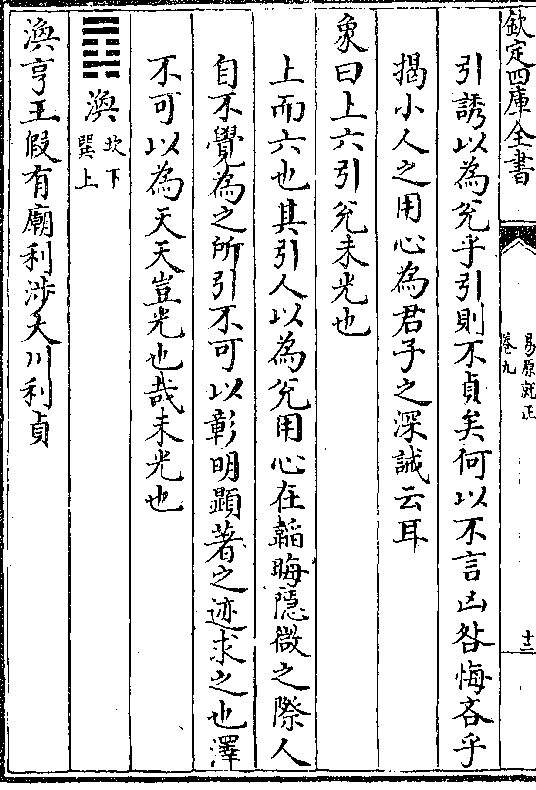 欽定四庫全書
易原就正
卷九
十三
引誘以為兊乎引則不貞矣何以不言凶咎悔吝乎
揭小人之用心為君子之深誡云耳
象曰上六引兊未光也
上而六也其引人以為兊用心在韜晦隱微之際人
自不覺為之所引不可以彰明顯著之迹求之也澤
不可以為天天豈光也哉未光也
䷺渙坎下巽上
渙亨王假有廟利涉大川利貞